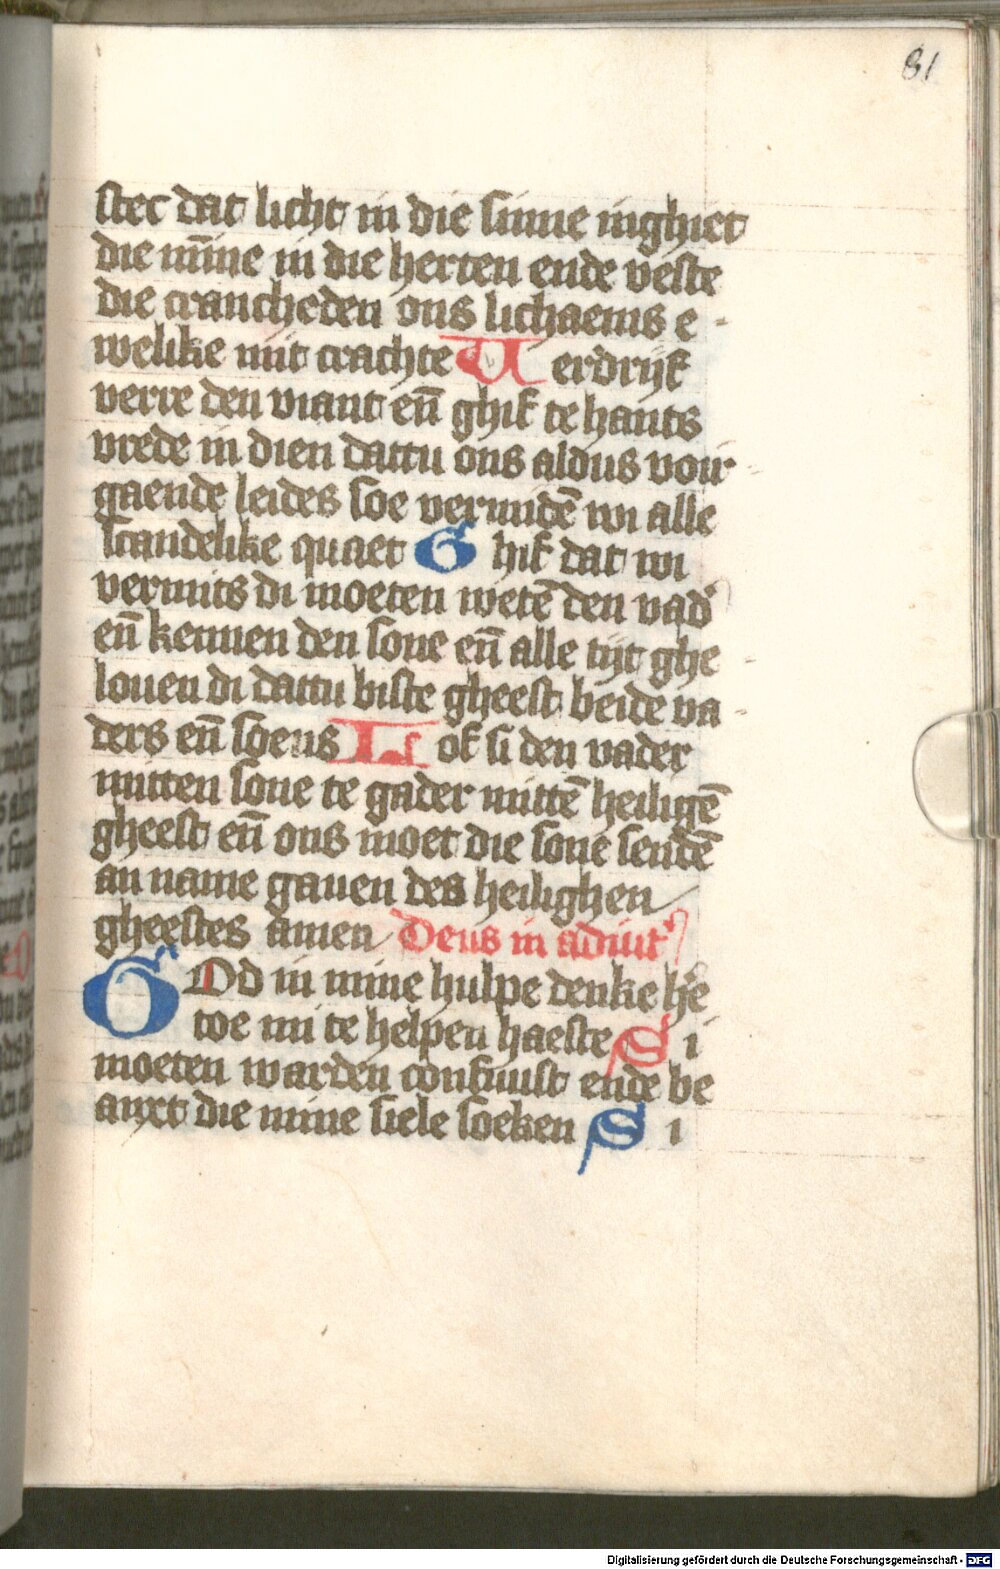 81
stec dat licht in die sinne inghiet
die mīne in die herten ende veste
die crancheden ons lichaems e-
welike mit crachte Verdrijf
verre den viant en̄ ghif te hants
vrede in dien dattu ons aldus voir
gaende leides soe vermidē wi alle
scandelike quaet Ghif dat wi
vermits di moeten wetē den vad'
en̄ kennen den sone en̄ alle tijt ghe-
louen di dattu biste gheest beide va-
ders en̄ soens Lof si den vader
mitten sone te gader mittē heiligē
gheest en̄ ons moet die sone sendē
an name gauen des heilighen
gheestes amen Deus in adiut'
GOd in mine hulpe denke he'e
toe mi te helpen haeste Si
moeten warden confuust ende be
anxt die mine siele soeken Si
Digitalisierung gefördert durch die Deutsche Forschungsgemeinschaft - DFG